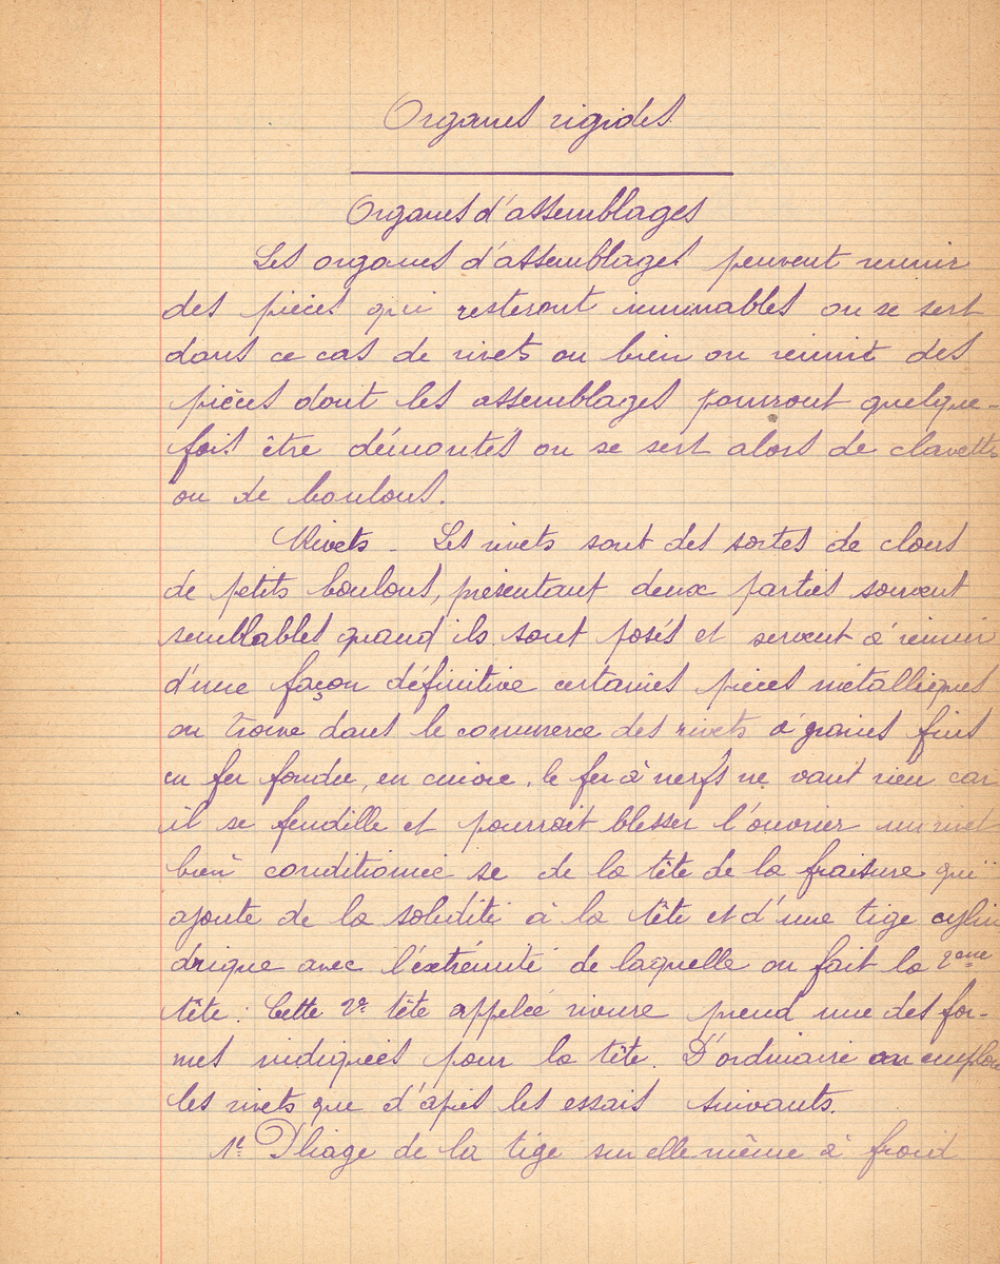 Organes rigides
Organes d'assemblages
Les organes d'assemblages peuvent reunir
des pièces qui resteront immuables on se sert
dans ce cas de rivets ou bien on reunit des
pièces dont les assemblages pourront quelque-
fois être démontés on se sert alors de clavettes
ou de boulons.
Rivets - Les rivets sont des sortes de clous
de petits boulons, présentant deux parties souvent
semblables quand ils sont posés et servent à reunir
d'une façon définitive certaines pieces métalliques
on trouve dans le commerce des rivets à grains fins
en fer fondu, en cuivre, le fer à nerfs ne vaut rien car
il se fendille et pourrait blesser l'ouvrier un rivet
bien conditionné se de la tête de la fraisure qui
ajoute de la solidité à la tête et d'une tige cylin
drique avec l'extrémité de laquelle on fait la 2eme
tête : Cette 2e tête appelée rivure prend une des for-
mes indiquées pour la tête. D'ordinaire on emploie
les rivets que d'après les essais suivants.
1e Pliage de la tige sur elle même à froid